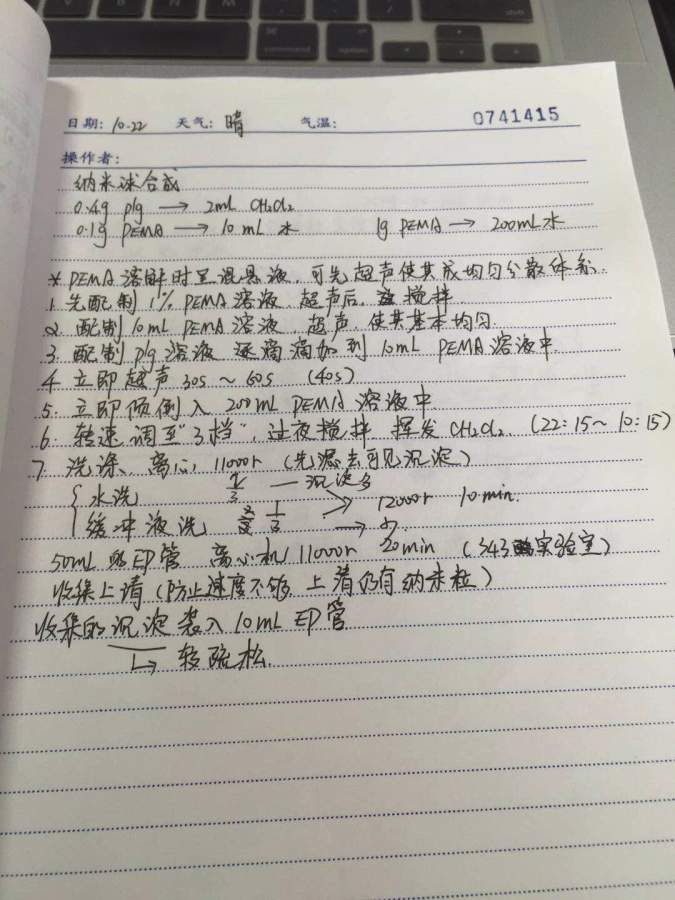 command
option
日期: 10.22 天气: 晴 气温: 0741415
操作者:
纳米球合成
0.4g plg → 2mL CH2Cl2
0.1g PEMA → 10 mL 水 1g PEMA → 200mL 水
* PEMA 溶解时呈混悬液,可先超声使其成均匀分散体系.
1. 先配制 1% PEMA 溶液 超声后, 搅拌
2. 配制 10mL PEMA 溶液, 超声, 使其基本均匀.
3. 配制 plg 溶液 逐滴滴加到 10mL PEMA 溶液中.
4 立即超声 30s ~ 60s (40s)
5. 立即倾倒入 200mL PEMA 溶液中.
6. 转速调至"3档", 过夜搅拌 挥发 CH2Cl2. (22:15~10:15)
7. 洗涤、离心, 11000r (先滤去可见沉淀)
水洗 3 — 沉淀多 12000r 10 min.
缓冲液洗 1/3 → 少.
50mL EP管 离心机 11000r 20min (343 实验室)
收集上清 (防止速度不够 上清仍有纳米粒)
收集的沉淀装入 10mL EP管
↳ 较疏松.